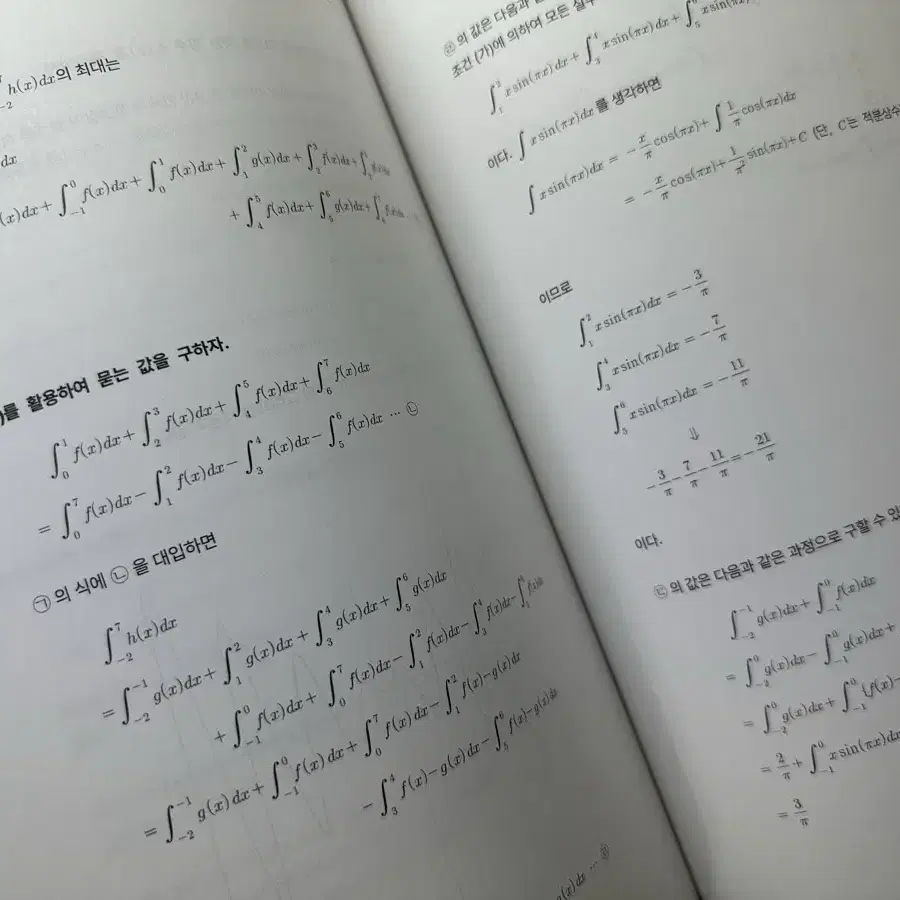 ∫_{-2}^{7} h(x)dx의 최대는
dx
(x)dx + ∫_{-1}^{0} f(x)dx + ∫_{0}^{1} f(x)dx + ∫_{1}^{2} g(x)dx + ∫_{2}^{3} f(x)dx +
+ ∫_{4}^{5} f(x)dx + ∫_{5}^{6} g(x)dx +
를 활용하여 묻는 값을 구하자.
∫_{0}^{1} f(x)dx + ∫_{2}^{3} f(x)dx + ∫_{4}^{5} f(x)dx + ∫_{6}^{7} f(x)dx
= ∫_{0}^{7} f(x)dx − ∫_{1}^{2} f(x)dx − ∫_{3}^{4} f(x)dx − ∫_{5}^{6} f(x)dx ⋯ ㉡
㉠의 식에 ㉡을 대입하면
∫_{-2}^{7} h(x)dx
= ∫_{-2}^{-1} g(x)dx + ∫_{1}^{2} g(x)dx + ∫_{3}^{4} g(x)dx + ∫_{5}^{6} g(x)dx
+ ∫_{-1}^{0} f(x)dx + ∫_{0}^{7} f(x)dx − ∫_{1}^{2} f(x)dx − ∫_{3}^{4} f(x)dx − ∫_{5}^{6} f(x)dx
= ∫_{-2}^{-1} g(x)dx + ∫_{-1}^{0} f(x)dx + ∫_{0}^{7} f(x)dx − ∫_{1}^{2} f(x)−g(x)dx
− ∫_{3}^{4} f(x)−g(x)dx − ∫_{5}^{6} f(x)−g(x)dx
(x)dx ⋯
의 값은 다음과 같
조건 (가)에 의하여 모든 실수
∫_{1}^{2} xsin(πx)dx + ∫_{3}^{4} xsin(πx)dx + ∫_{5}^{6} xsin(πx)
이다. ∫ xsin(πx)dx를 생각하면
∫ xsin(πx)dx = −x/π cos(πx) + ∫ 1/π cos(πx)dx
= −x/π cos(πx) + 1/π² sin(πx) + C (단, C는 적분상수
이므로
∫_{1}^{2} xsin(πx)dx = −3/π
∫_{3}^{4} xsin(πx)dx = −7/π
∫_{5}^{6} xsin(πx)dx = −11/π
⇓
−3/π − 7/π − 11/π = −21/π
이다.
㉢의 값은 다음과 같은 과정으로 구할 수 있
∫_{-2}^{-1} g(x)dx + ∫_{-1}^{0} f(x)dx
= ∫_{-2}^{0} g(x)dx − ∫_{-1}^{0} g(x)dx +
= ∫_{-2}^{0} g(x)dx + ∫_{-1}^{0} {f(x)−
= 2/π + ∫_{-1}^{0} xsin(πx)dx
= 3/π